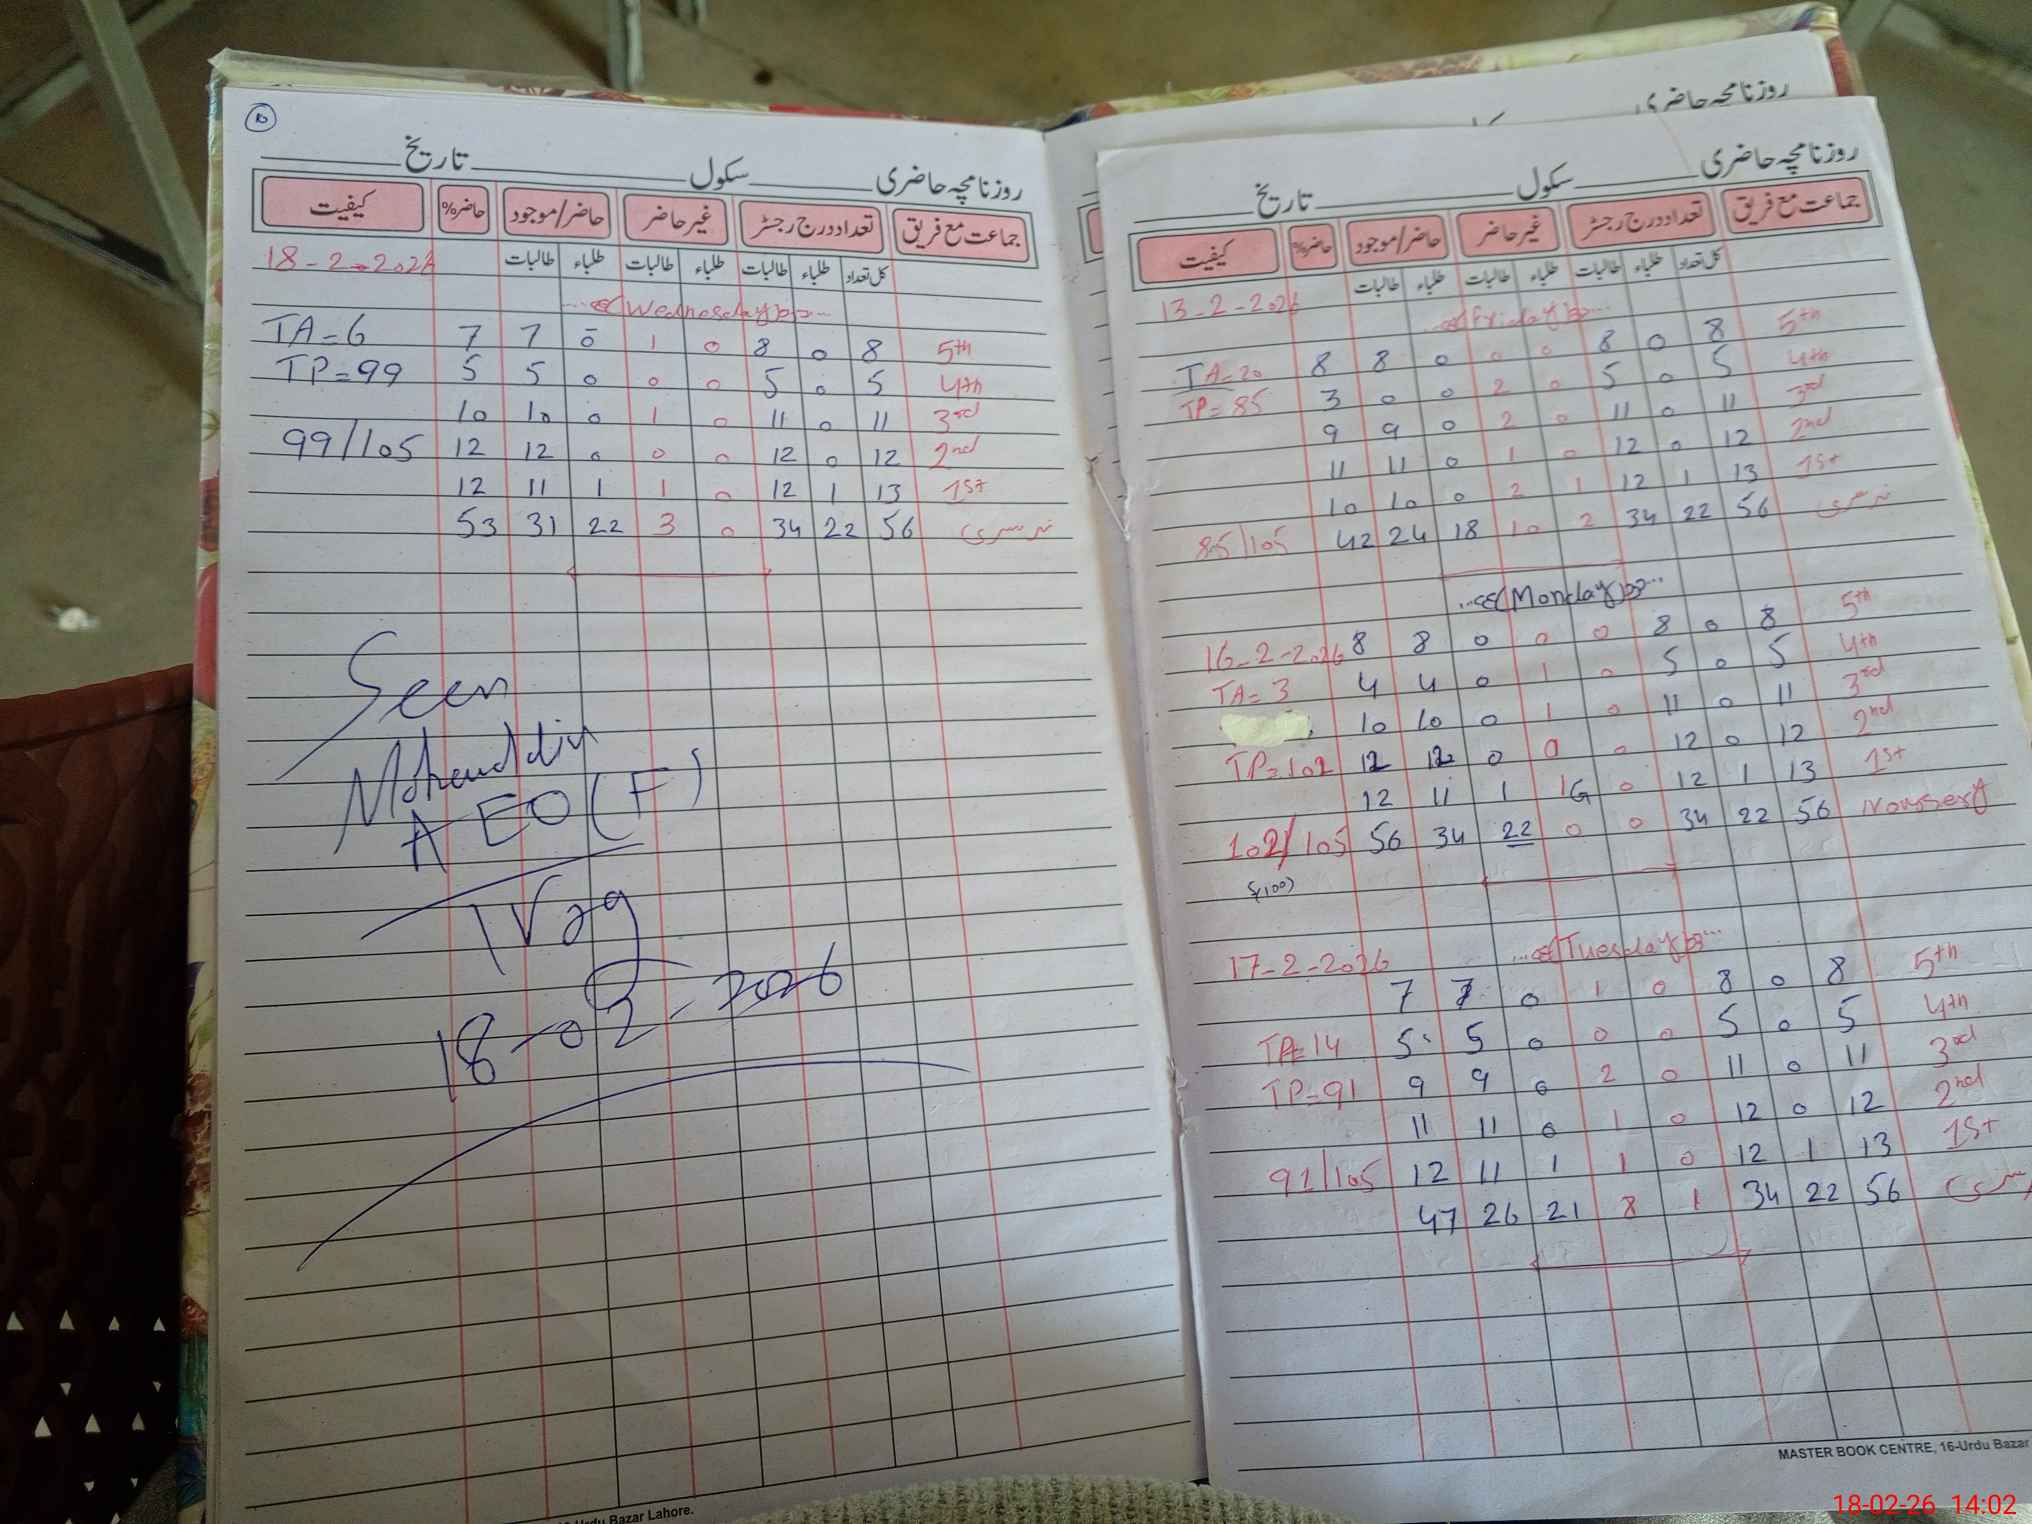 10
روزنامچہ حاضری ــــــ سکول ــــــ تاریخ ــــــ
جماعت مع فریق تعداد درج رجسٹر غیر حاضر حاضر/موجود حاضر% کیفیت
کل تعداد طلباء طالبات طلباء طالبات طلباء طالبات
18-2-2026
(Wednesday)
TA=6 7 7 0 1 0 8 0 8 5th
TP=99 5 5 0 0 0 5 0 5 4th
10 10 0 1 0 11 0 11 3rd
99/105 12 12 0 0 0 12 0 12 2nd
12 11 1 1 0 12 1 13 1st
53 31 22 3 0 34 22 56 نرسری
Seen
Mohauddin
AEO (F)
18-02-2026
Urdu Bazar Lahore.
روزنامچہ حاضری
روزنامچہ حاضری ــــــ سکول ــــــ تاریخ ــــــ
جماعت مع فریق تعداد درج رجسٹر غیر حاضر حاضر/موجود حاضر% کیفیت
کل تعداد طلباء طالبات طلباء طالبات طلباء طالبات
13-2-2026
(Friday)
TA=20 8 8 0 0 0 8 0 8 5th
TP=85 3 0 0 2 0 5 0 5 4th
9 9 0 2 0 11 0 11 3rd
11 11 0 1 0 12 0 12 2nd
10 10 0 2 1 12 1 13 1st
85/105 42 24 18 10 2 34 22 56 نرسری
(Monday)
16-2-2026 8 8 0 0 0 8 0 8 5th
TA=3 4 4 0 1 0 5 0 5 4th
10 10 0 1 0 11 0 11 3rd
TP=102 12 12 0 0 0 12 0 12 2nd
12 11 1 1G 0 12 1 13 1st
102/105 56 34 22 0 0 34 22 56 Noursery
17-2-2026
(Tuesday)
7 7 0 1 0 8 0 8 5th
TA=14 5 5 0 0 0 5 0 5 4th
TP=91 9 9 0 2 0 11 0 11 3rd
11 11 0 1 0 12 0 12 2nd
91/105 12 11 1 1 0 12 1 13 1st
47 26 21 8 1 34 22 56
MASTER BOOK CENTRE, 16-Urdu Bazar
18-02-26 14:02